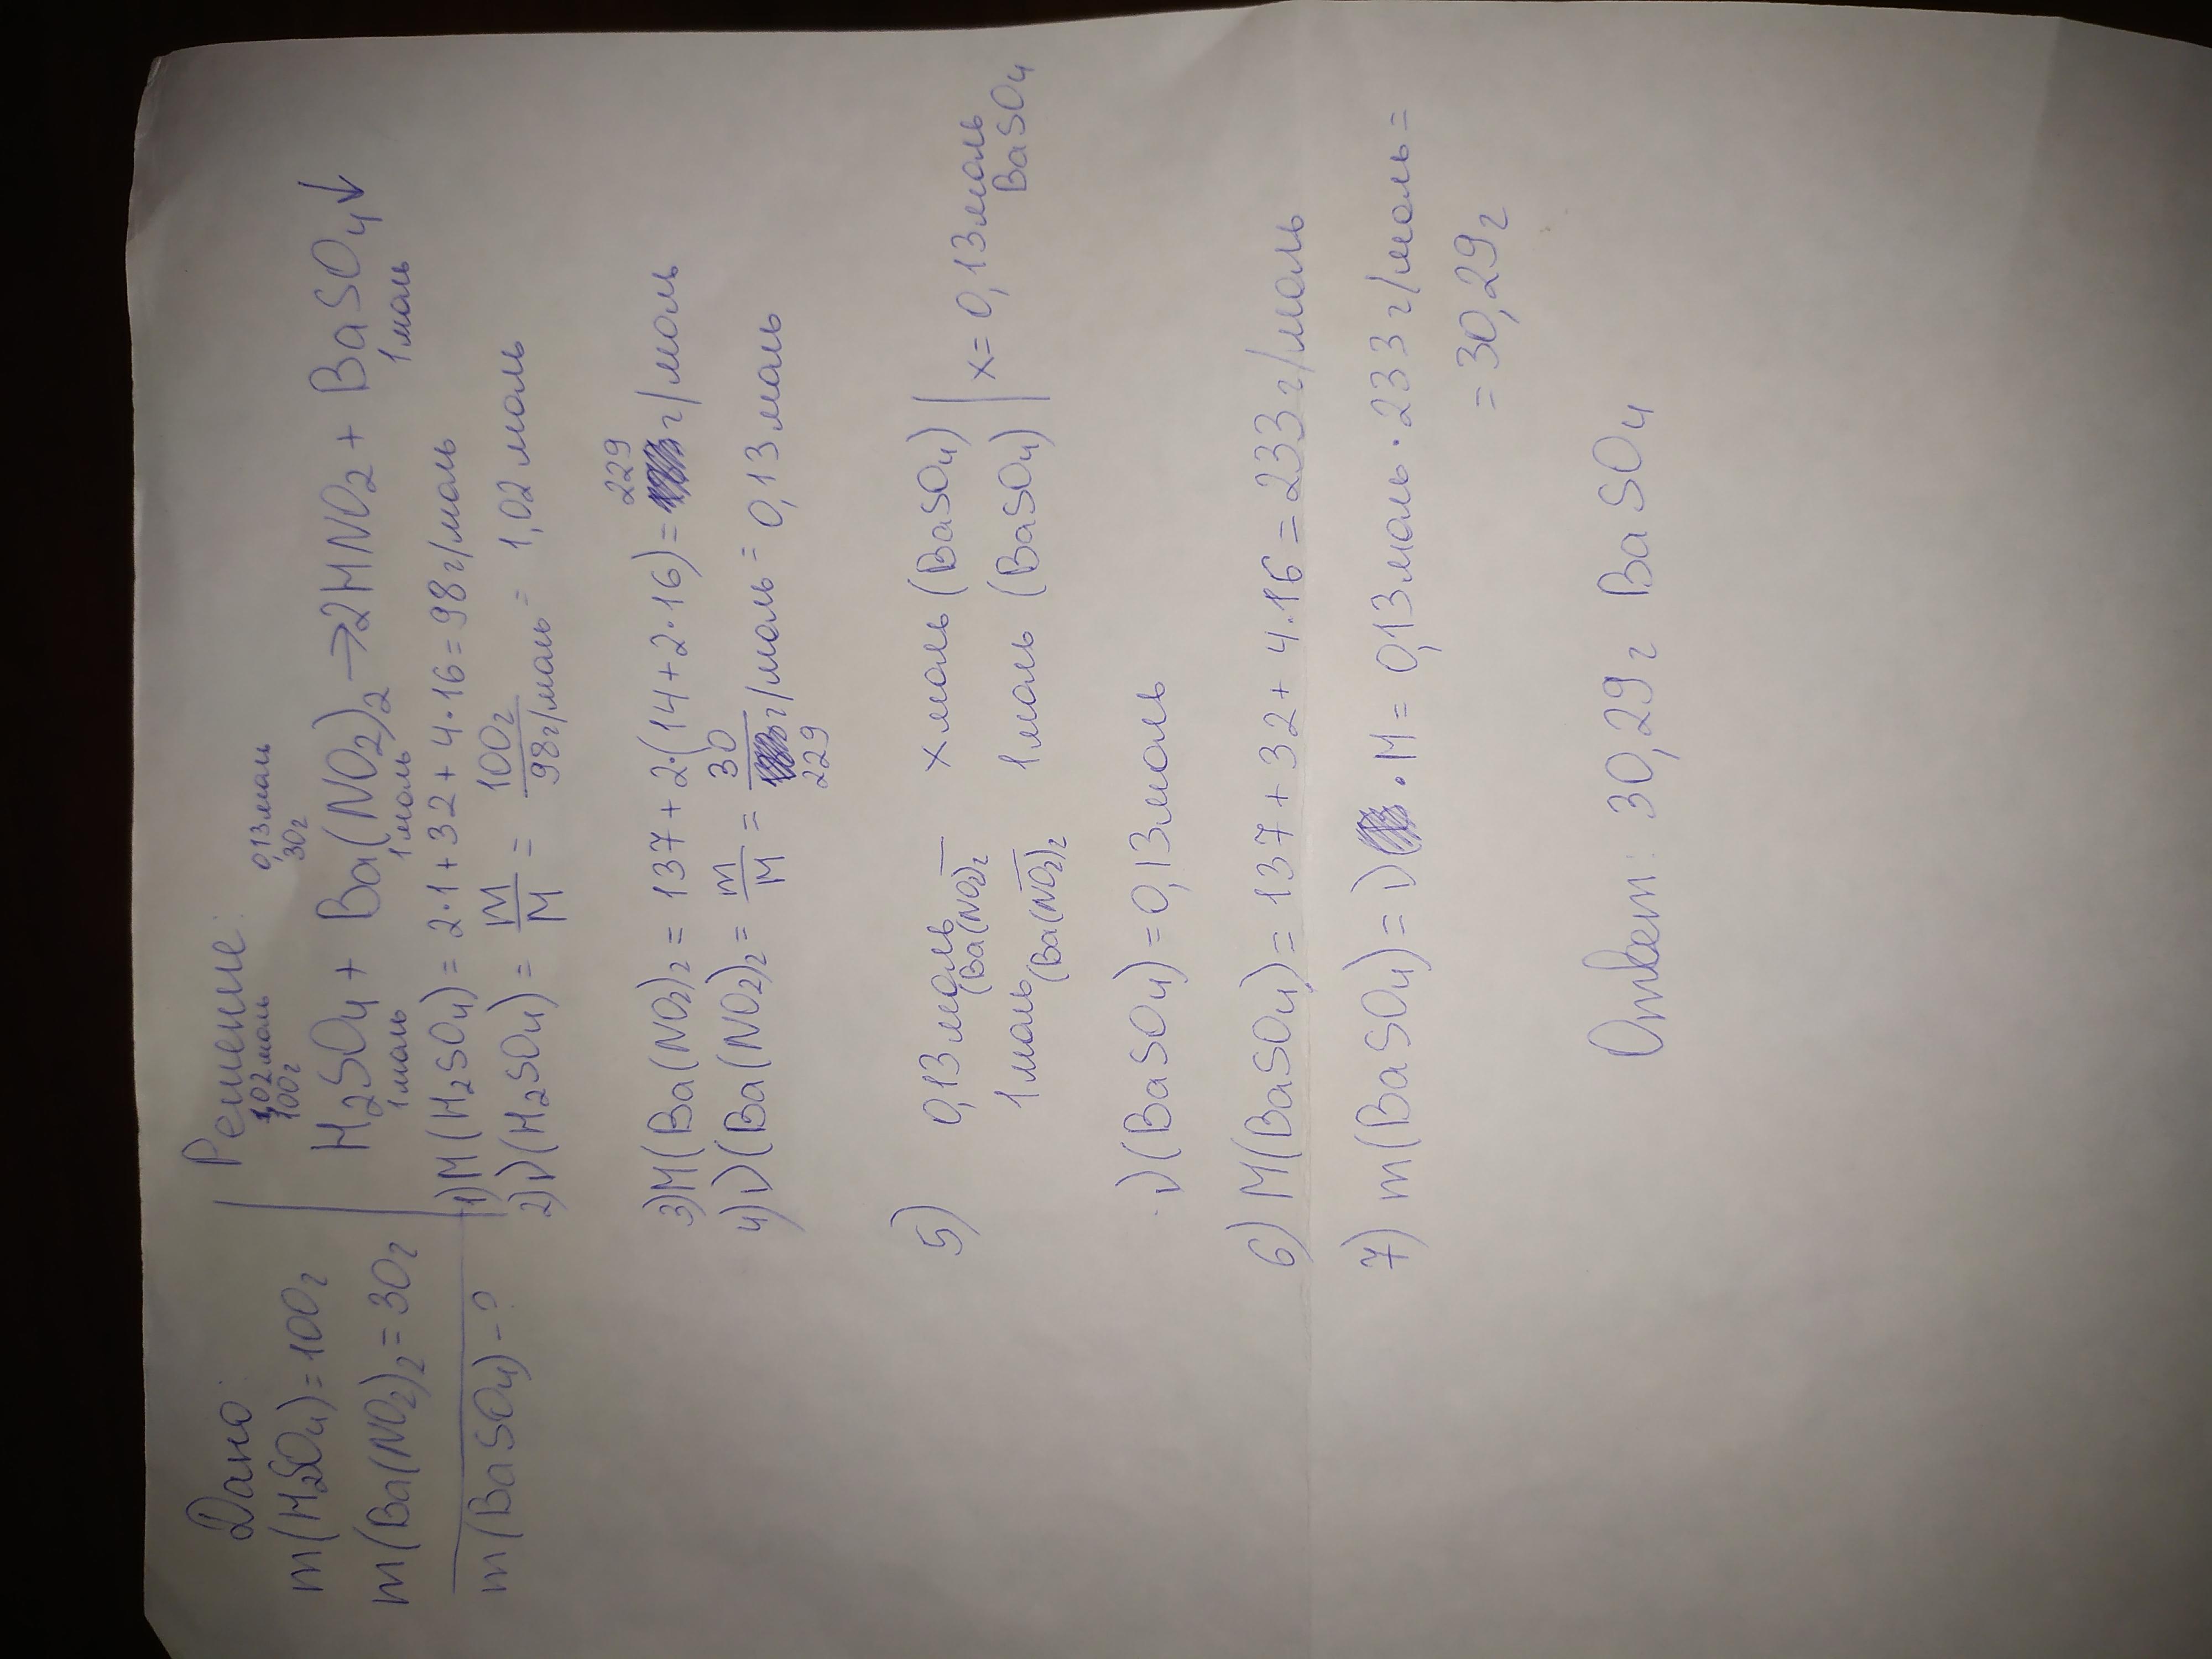 Дано:
m(H₂SO₄)=100г
m(Ba(NO₂)₂=30г
m(BaSO₄)-?
Решение:
1,02 моль 0,13 моль
100г 30г
H₂SO₄ + Ba(NO₂)₂ → 2HNO₂ + BaSO₄↓
1 моль 1 моль 1 моль
1) M(H₂SO₄) = 2·1+32+4·16=98г/моль
2) ν(H₂SO₄) = m/M = 100г/98г/моль = 1,02 моль
3) M(Ba(NO₂)₂ = 137+2·(14+2·16)= 229 г/моль
4) ν(Ba(NO₂)₂ = m/M = 30/229 г/моль = 0,13 моль
5) 0,13 моль (Ba(NO₂)₂ — x моль (BaSO₄) | x = 0,13 моль BaSO₄
1 моль (Ba(NO₂)₂ — 1 моль (BaSO₄)
ν(BaSO₄)=0,13моль
6) M(BaSO₄)= 137+32+4·16=233г/моль
7) m(BaSO₄)=ν·M=0,13моль·233г/моль=
=30,29г
Ответ: 30,29г BaSO₄